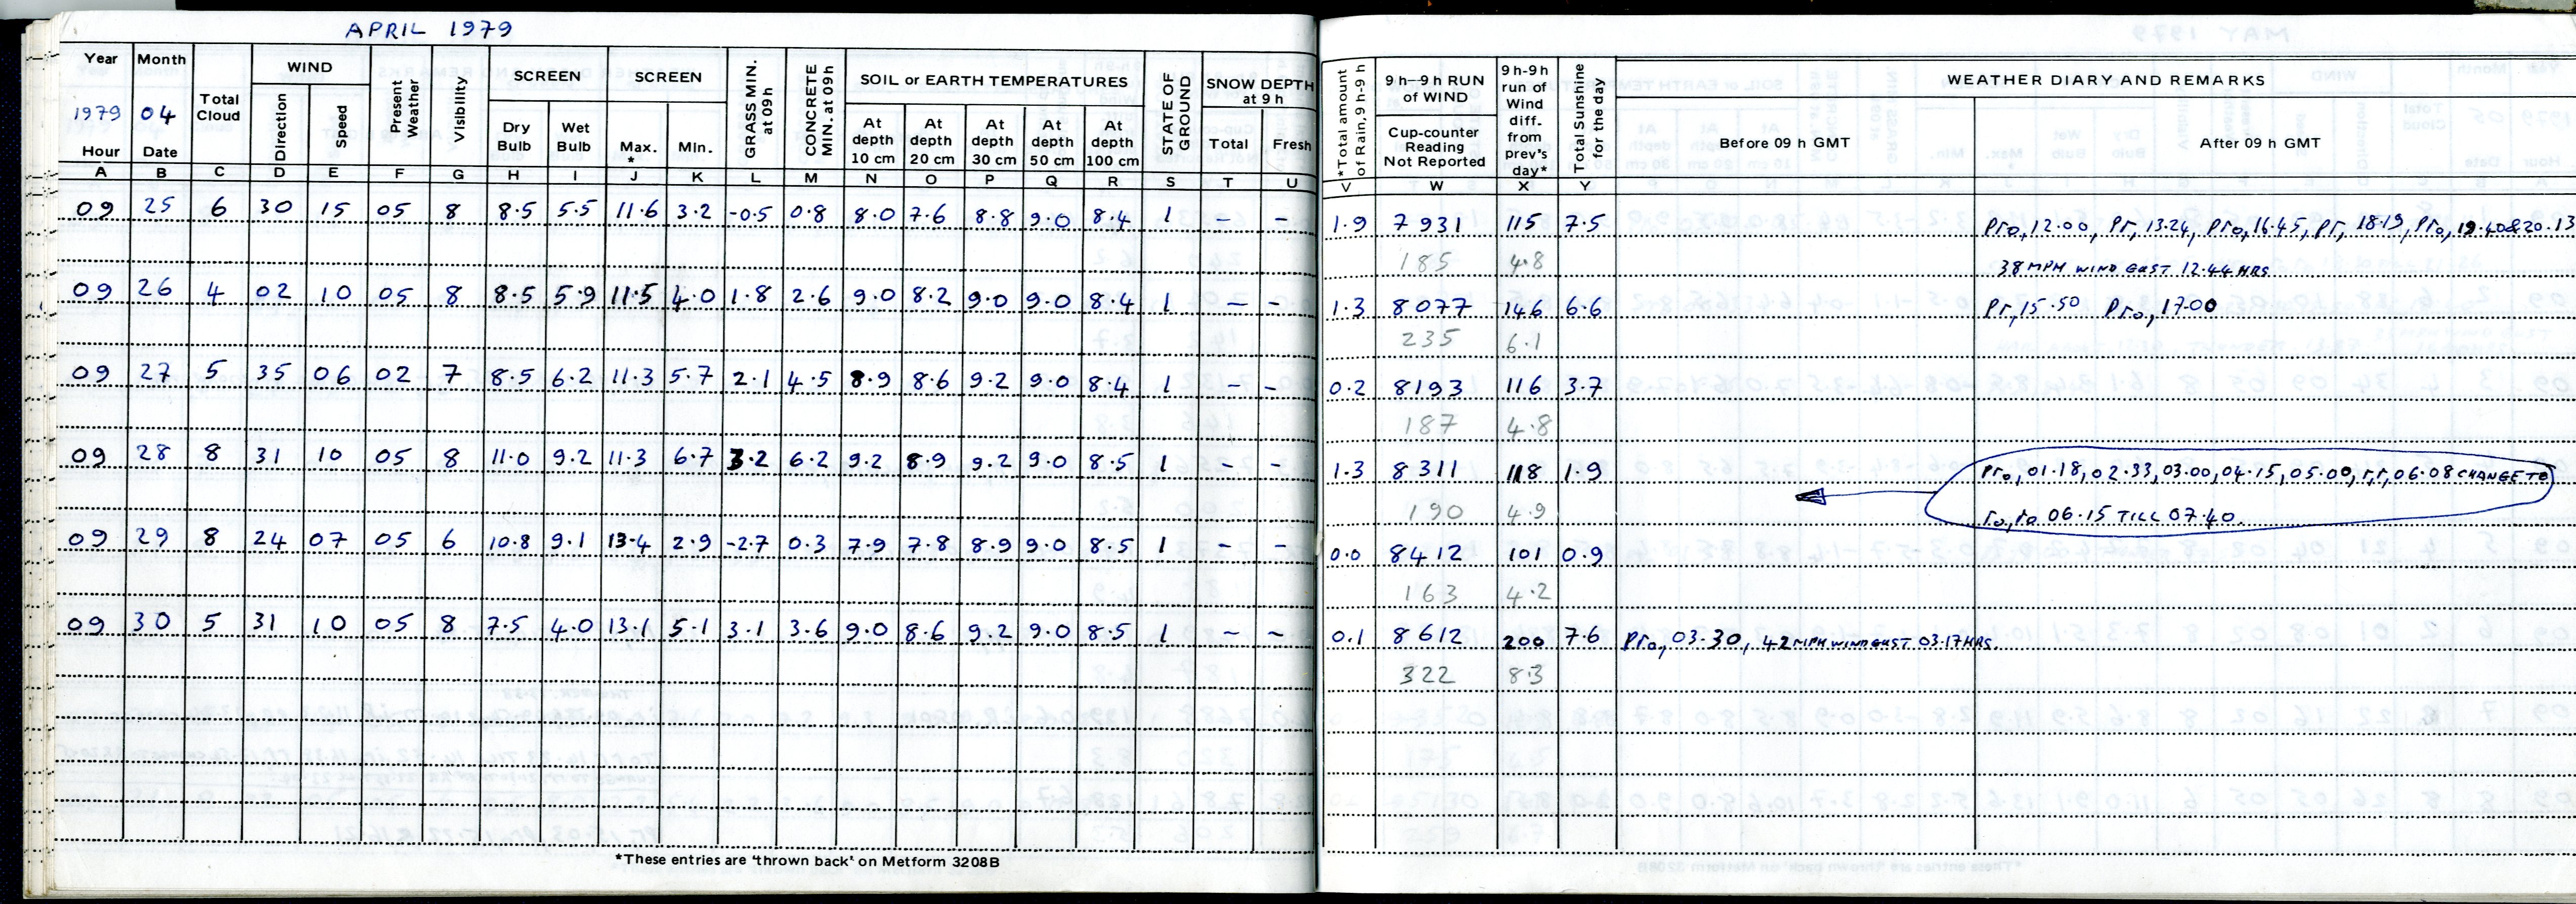 APRIL 1979
Year Month Total Cloud WIND Present Weather Visibility SCREEN SCREEN GRASS MIN. at 09h CONCRETE MIN. at 09h SOIL or EARTH TEMPERATURES STATE OF GROUND SNOW DEPTH at 9 h *Total amount of Rain, 9h-9 h 9 h—9 h RUN of WIND 9 h-9h run of Wind diff. from prev's day* Total Sunshine for the day WEATHER DIARY AND REMARKS
1979 04 Direction Speed Dry Bulb Wet Bulb Max. * Min. At depth 10 cm At depth 20 cm At depth 30 cm At depth 50 cm At depth 100 cm Total Fresh Cup-counter Reading Not Reported Before 09 h GMT After 09 h GMT
Hour Date
A B C D E F G H I J K L M N O P Q R S T U V W X Y
09 25 6 30 15 05 8 8.5 5.5 11.6 3.2 -0.5 0.8 8.0 7.6 8.8 9.0 8.4 1 – – 1.9 7931 115 7.5 Pro, 12.00, Pr, 13.24, Pro, 16.45, Pr, 18.19, Pro, 19.40 & 20.13
185 4.8 38 MPH WIND GUST 12.44 HRS
09 26 4 02 10 05 8 8.5 5.9 11.5 4.0 1.8 2.6 9.0 8.2 9.0 9.0 8.4 1 – – 1.3 8077 146 6.6 Pr, 15.50 Pro, 17.00
235 6.1
09 27 5 35 06 02 7 8.5 6.2 11.3 5.7 2.1 4.5 8.9 8.6 9.2 9.0 8.4 1 – – 0.2 8193 116 3.7
187 4.8
09 28 8 31 10 05 8 11.0 9.2 11.3 6.7 3.2 6.2 9.2 8.9 9.2 9.0 8.5 1 – – 1.3 8311 118 1.9 Pro, 01.18, 02.33, 03.00, 04.15, 05.00, r,r, 06.08 CHANGE TO
190 4.9 ro, ro 06.15 TILL 07.40.
09 29 8 24 07 05 6 10.8 9.1 13.4 2.9 -2.7 0.3 7.9 7.8 8.9 9.0 8.5 1 – – 0.0 8412 101 0.9
163 4.2
09 30 5 31 10 05 8 7.5 4.0 13.1 5.1 3.1 3.6 9.0 8.6 9.2 9.0 8.5 1 – – 0.1 8612 200 7.6 Pro, 03.30, 42 MPH WIND GUST 03.17 HRS.
322 8.3
*These entries are 'thrown back' on Metform 3208B